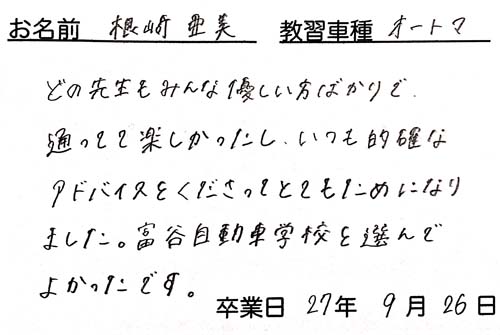 お名前 根崎 亜美 教習車種 オートマ
どの先生もみんな優しい方ばかりで、
通ってて楽しかったし、いつも的確な
アドバイスをくださってとてもためになり
ました。富谷自動車学校を選んで
よかったです。
卒業日 27年 9月 26日